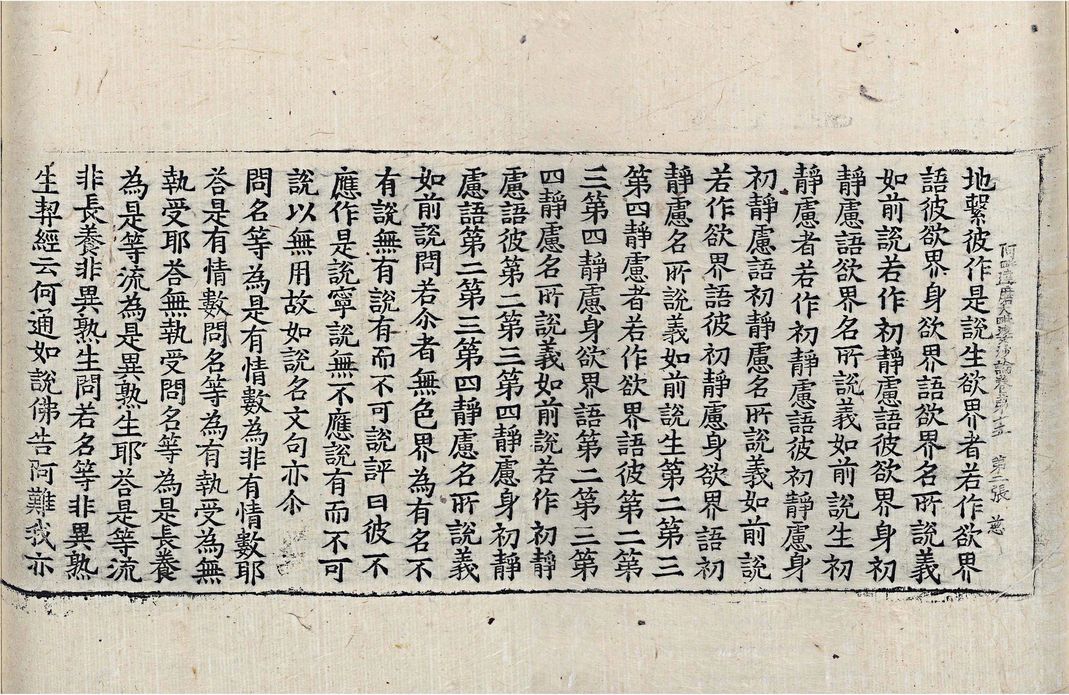 阿毗達磨大毗婆沙論卷第十五　第二張　慈
地繫彼作是說生欲界者若作欲界
語彼欲界身欲界語欲界名所說義
如前說若作初靜慮語彼欲界身初
靜慮語欲界名所說義如前說生初
靜慮者若作初靜慮語彼初靜慮身
初靜慮語初靜慮名所說義如前說
若作欲界語彼初靜慮身欲界語初
靜慮名所說義如前說生第二第三
第四靜慮者若作欲界語彼第二第
三第四靜慮身欲界語第二第三第
四靜慮名所說義如前說若作初靜
慮語彼第二第三第四靜慮身初靜
慮語第二第三第四靜慮名所說義
如前說問若尒者無色界為有名不
有說無有說有而不可說評曰彼不
應作是說寧說無不應說有而不可
說以無用故如說名文句亦尒
問名等為是有情數為非有情數耶
荅是有情數問名等為有執受為無
執受耶荅無執受問名等為是長養
為是等流為是異熟生耶荅是等流
非長養非異熟生問若名等非異熟
生契經云何通如說佛告阿難我亦